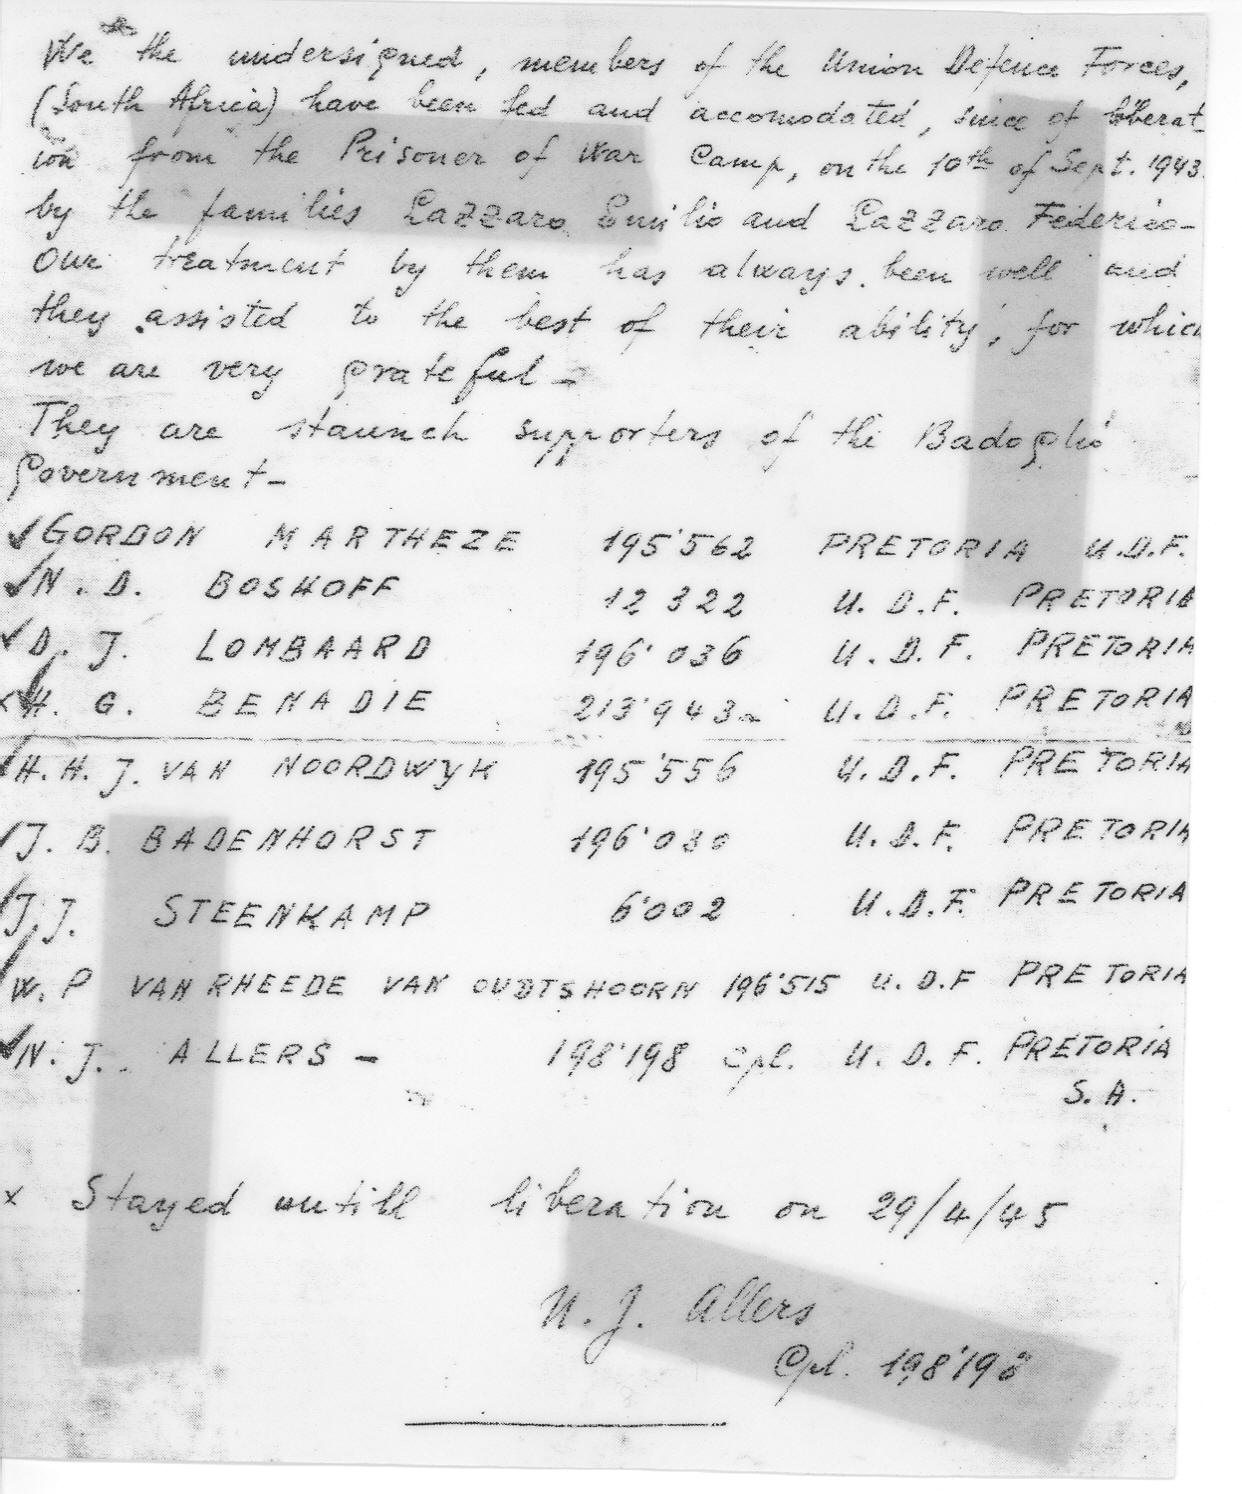 We the undersigned, members of the Union Defence Forces,
(South Africa) have been fed and accomodated, since of liberat-
ion from the Prisoner of War Camp, on the 10th of Sept. 1943.
by the families Lazzaro Emilio and Lazzaro Federico-
Our treatment by them has always been well and
they assisted to the best of their ability, for which
we are very grateful-
They are staunch supporters of the Badoglio
Government-
GORDON MARTHEZE 195'562 PRETORIA U.D.F.
N. D. BOSHOFF 12322 U.D.F. PRETORIA
D. J. LOMBAARD 196'036 U.D.F. PRETORIA
x H. G. BENADIE 213'943- U.D.F. PRETORIA
H. H. J. VAN NOORDWYK 195'556 U.D.F. PRETORIA
J. B. BADENHORST 196'030 U.D.F. PRETORIA
J. J. STEENKAMP 6'002 U.D.F. PRETORIA
W. P VAN RHEEDE VAN OUDTSHOORN 196'515 U.D.F PRETORIA
N. J. ALLERS - 198'198 Cpl. U.D.F. PRETORIA
S.A.
x Stayed untill liberation on 29/4/45
N. J. Allers
Cpl. 198'198